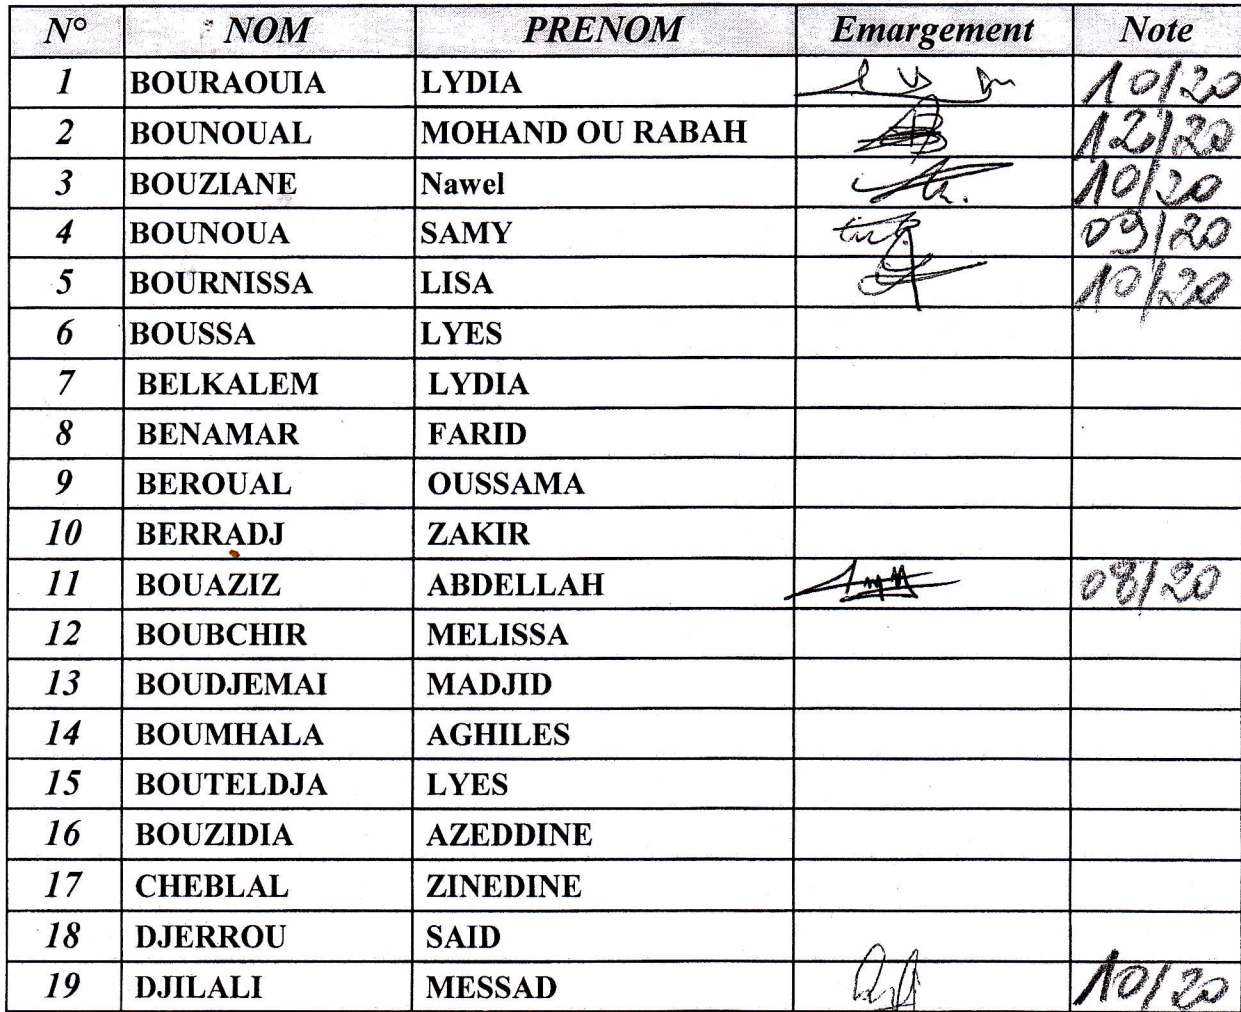 N° NOM PRENOM Emargement Note
1 BOURAOUIA LYDIA 10/20
2 BOUNOUAL MOHAND OU RABAH 12/20
3 BOUZIANE Nawel 10/20
4 BOUNOUA SAMY 09/20
5 BOURNISSA LISA 10/20
6 BOUSSA LYES
7 BELKALEM LYDIA
8 BENAMAR FARID
9 BEROUAL OUSSAMA
10 BERRADJ ZAKIR
11 BOUAZIZ ABDELLAH 08/20
12 BOUBCHIR MELISSA
13 BOUDJEMAI MADJID
14 BOUMHALA AGHILES
15 BOUTELDJA LYES
16 BOUZIDIA AZEDDINE
17 CHEBLAL ZINEDINE
18 DJERROU SAID
19 DJILALI MESSAD 10/20